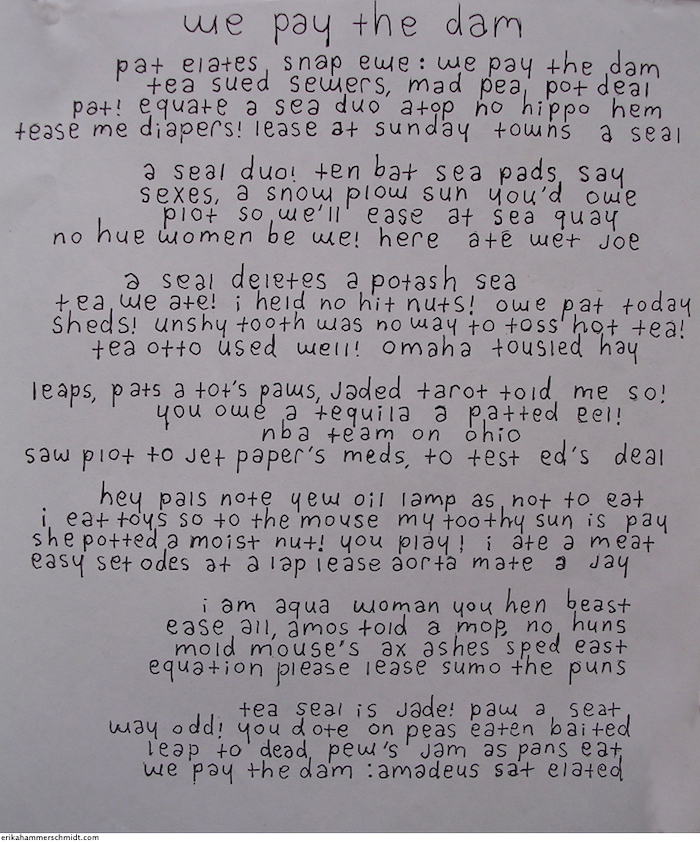 we pay the dam
pat elates snap ewe : we pay the dam
tea sued sewers, mad pea, pot deal
pat! equate a sea duo atop no hippo hem
tease me diapers! lease at sunday towns a seal
a seal duo! ten bat sea pads, say
sexes, a snow plow sun you'd owe
plot so we'll ease at sea quay
no hue women be we! here ate wet joe
a seal deletes a potash sea
tea we ate! i held no hit nuts! owe pat today
sheds! unshy tooth was no way to toss hot tea!
tea otto used well! omaha tousled hay
leaps, pats a tot's paws, jaded tarot told me so!
you owe a tequila a patted eel!
nba team on ohio
saw plot to jet paper's meds, to test ed's deal
hey pals note yew oil lamp as not to eat
i eat toys so to the mouse my toothy sun is pay
she potted a moist nut! you play! i ate a meat
easy set odes at a lap lease aorta mate a jay
i am aqua woman you hen beast
ease all, amos told a mop, no huns
mold mouse's ax ashes sped east
equation please lease sumo the puns
tea seal is jade! paw a seat
way odd! you dote on peas eaten baited
leap to dead, pew's jam as pans eat
we pay the dam :amadeus sat elated
erikahammerschmidt.com